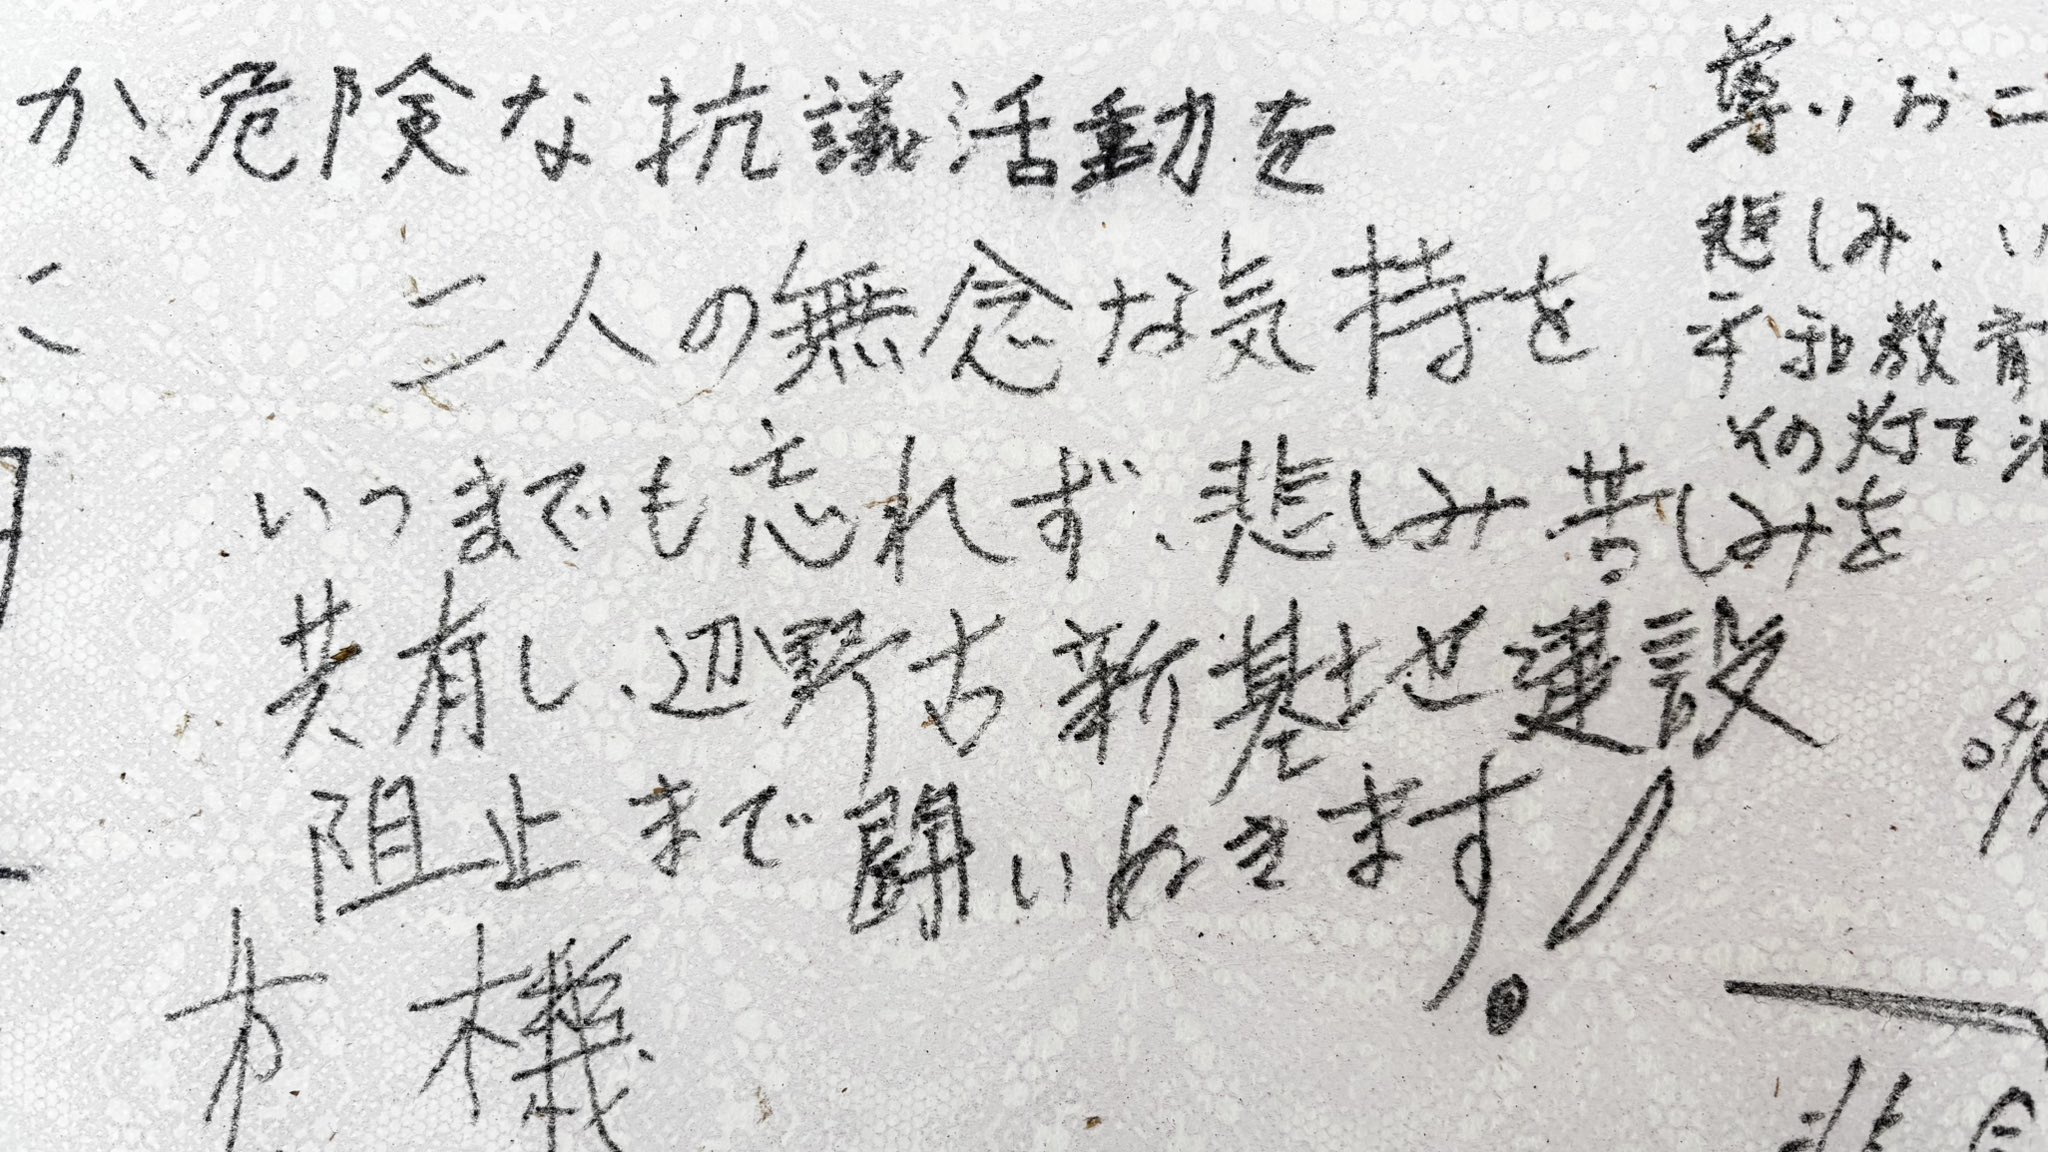 が、危険な抗議活動を
二人の無念な気持を
いつまでも忘れず、悲しみ苦しみを
共有し、辺野古新基地建設
阻止まで闘いぬきます!
機
尊いお
悲しみ、い
平和教育
その灯て